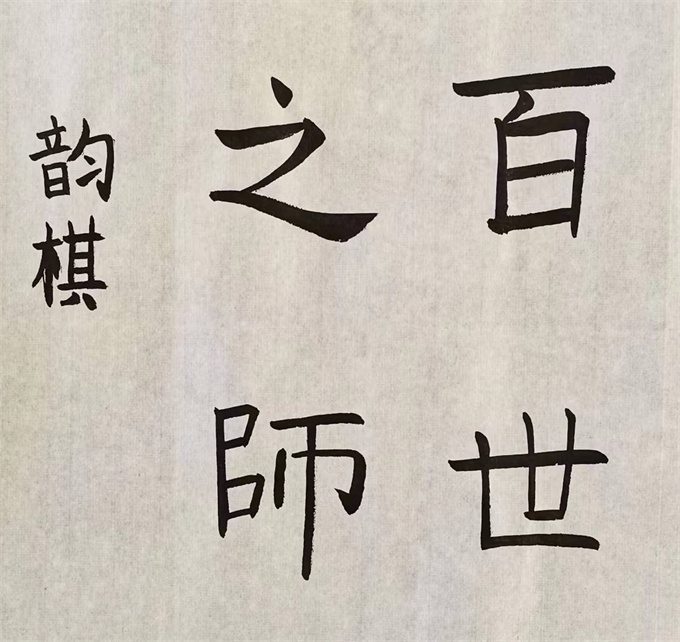 百世
之師
韵棋